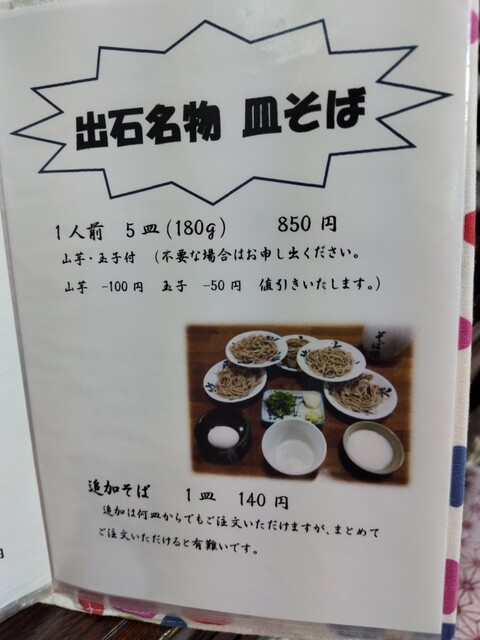 出石名物 皿そば
1人前 5皿(180g) 850円
山芋・玉子付 (不要な場合はお申し出ください。
山芋 -100円 玉子 -50円 値引きいたします。)
追加そば 1皿 140円
追加は何皿からでもご注文いただけますが、まとめて
ご注文いただけると有難いです。
円